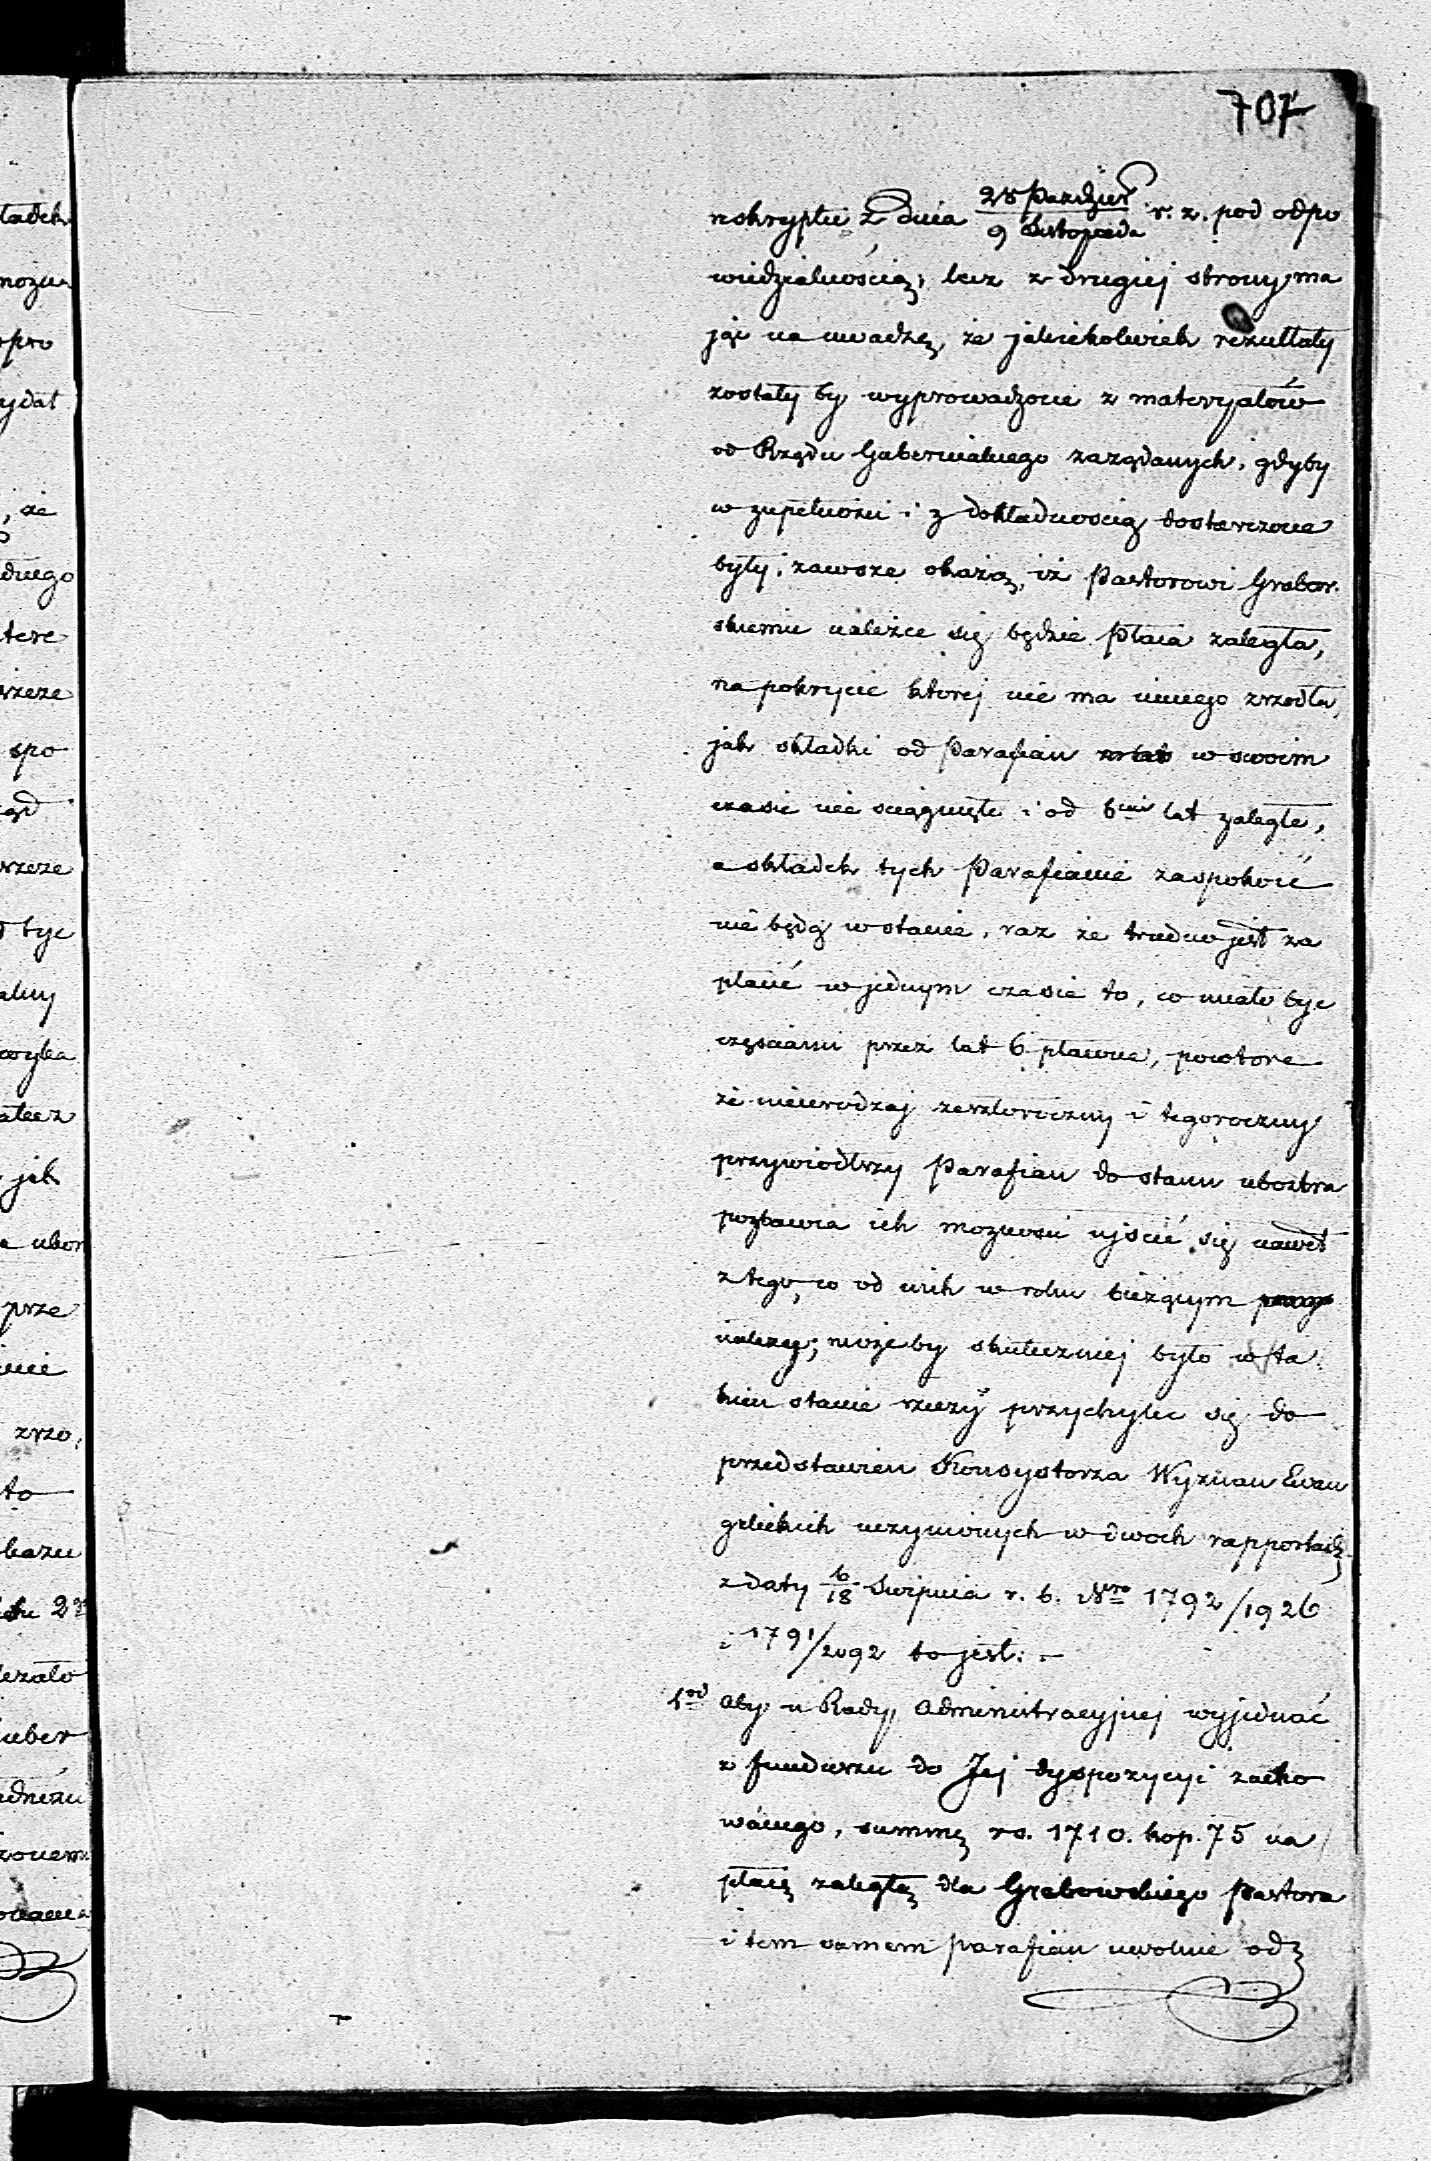 707
reskryptu z dnia 28 Paździer / 9 Listopada r. z. pod odpo
wiedzialnością, lecz z drugiej strony ma
jąc na uwadze, że jakiekolwiek rezultaty
zostały by wyprowadzone z materyałów
od Rządu Gubernialnego zażądanych, gdyby
w zupełności i z dokładnością dostarczone
były, zawsze okażą, iż Pastorowi Grabow
skiemu należeć się będzie płaca zaległa,
na pokrycie ktorej nie ma innego zrzodła,
jak składki od Parafian w swoim
czasie nie sciągnięte i od 6ciu lat zaległe,
a składek tych Parafianie zaspokoić
nie będą w stanie, raz że trudno jest za
płacić w jednym czasie to, co miało byc
częściami przez lat 6 płacone, powtore
że nieurodzaj zeszłoroczny i tegoroczny
przywiodłszy Parafian do stanu ubóstwa
pozbawia ich możności ujścić się nawet
z tego, co od nich w roku bieżącym
należy; może by skuteczniej było w ta
kim stanie rzeczy przychylić się do
przedstawień Konsystorza Wyznań Ewan
gelickich uczynionych w dwoch rapportach
z daty 6/18 Sierpnia r. b. Nro 1792/1926
i 1791/2092 to jest: -
1od Aby u Rady Administracyjnej wyjednać
z funduszu do Jej dyspozycyi zacho
wanego, summę rs. 1710. kop. 75 na
płacę zaległą dla Grabowskiego Pastora
i tem samem parafian uwolnić od